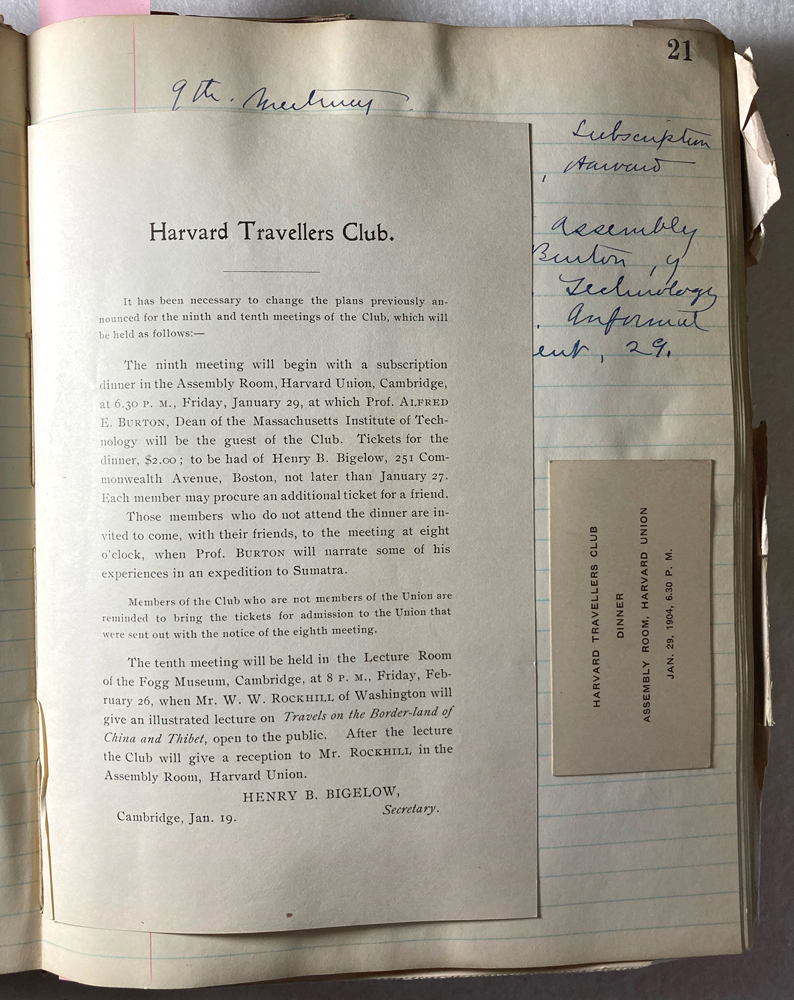 21
9th. Meeting
Subscription
, Harvard
Assembly
Burton, of
. Technology
. Informal
ent, 29.
Harvard Travellers Club.
It has been necessary to change the plans previously an-
nounced for the ninth and tenth meetings of the Club, which will
be held as follows:—
The ninth meeting will begin with a subscription
dinner in the Assembly Room, Harvard Union, Cambridge,
at 6.30 P. M., Friday, January 29, at which Prof. ALFRED
E. BURTON, Dean of the Massachusetts Institute of Tech-
nology will be the guest of the Club. Tickets for the
dinner, $2.00; to be had of Henry B. Bigelow, 251 Com-
monwealth Avenue, Boston, not later than January 27.
Each member may procure an additional ticket for a friend.
Those members who do not attend the dinner are in-
vited to come, with their friends, to the meeting at eight
o'clock, when Prof. BURTON will narrate some of his
experiences in an expedition to Sumatra.
Members of the Club who are not members of the Union are
reminded to bring the tickets for admission to the Union that
were sent out with the notice of the eighth meeting.
The tenth meeting will be held in the Lecture Room
of the Fogg Museum, Cambridge, at 8 P. M., Friday, Feb-
ruary 26, when Mr. W. W. ROCKHILL of Washington will
give an illustrated lecture on Travels on the Border-land of
China and Thibet, open to the public. After the lecture
the Club will give a reception to Mr. ROCKHILL in the
Assembly Room, Harvard Union.
HENRY B. BIGELOW,
Secretary.
Cambridge, Jan. 19.
HARVARD TRAVELLERS CLUB
DINNER
ASSEMBLY ROOM, HARVARD UNION
JAN. 29, 1904, 6.30 P. M.